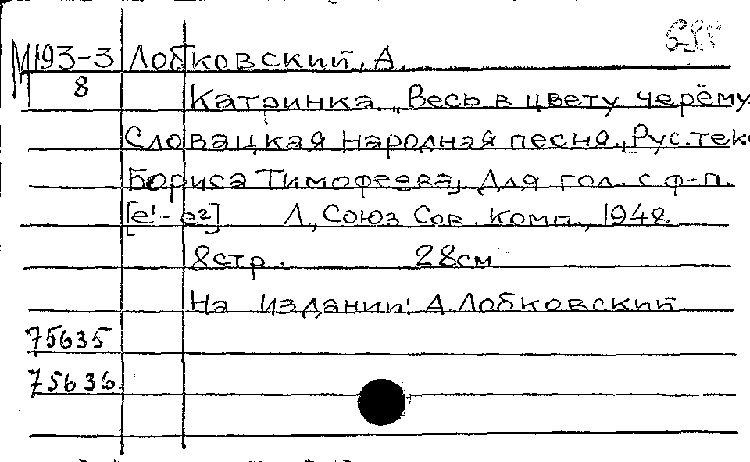 М193-3 Лобковский, А.
8
Катринка. „Весь в цвету черёму
Словацкая народная песня. Рус. тек
Бориса Тимофеева, Для гол. с ф-п.
[e¹-e²] Л., Союз Сов. комп., 1948.
8стр. 28см
На издании: А. Лобковский
75635
75636